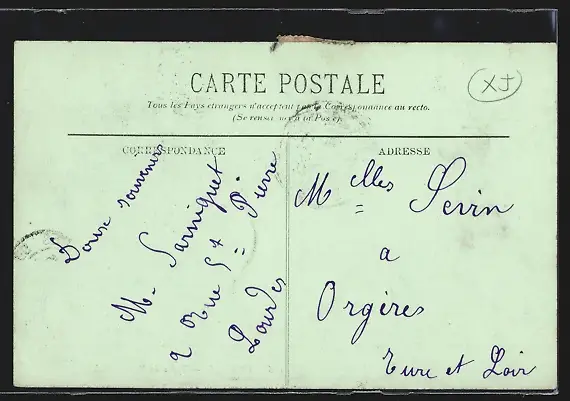 CARTE POSTALE
Tous les Pays étrangers n'acceptent pas la Correspondance au recto.
(Se renseigner à la Poste).
CORRESPONDANCE
Doux souvenirs
M. Sarniguet
9 Rue St Pierre
Lourdes
ADRESSE
Melles Sevin
a
Orgères
Eure et Loir
XJ